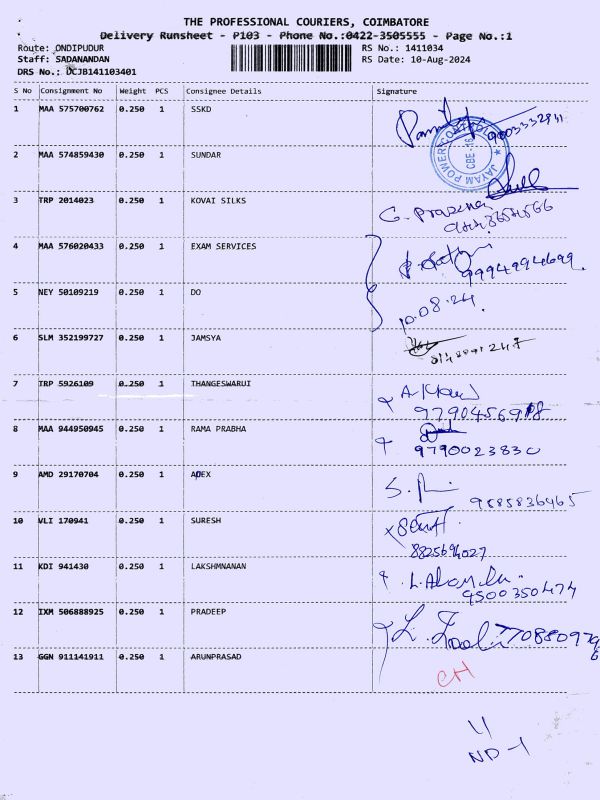 THE PROFESSIONAL COURIERS, COIMBATORE
Delivery Runsheet - P103 - Phone No.:0422-3505555 - Page No.:1
Route: ONDIPUDUR RS No.: 1411034
Staff: SADANANDAN RS Date: 10-Aug-2024
DRS No.: DCJB141103401
S No Consignment No Weight PCS Consignee Details Signature
1 MAA 575700762 0.250 1 SSKD
JAYAM POWER CONTROL
CBE-16
2 MAA 574859430 0.250 1 SUNDAR
3 TRP 2014023 0.250 1 KOVAI SILKS
4 MAA 576020433 0.250 1 EXAM SERVICES
9994994699
5 NEY 50109219 0.250 1 DO
10.08.24
6 SLM 352199727 0.250 1 JAMSYA
7 TRP 5926109 0.250 1 THANGESWARUI
8 MAA 944950945 0.250 1 RAMA PRABHA
9790023830
9 AMD 29170704 0.250 1 APEX
S.
9585836465
10 VLI 170941 0.250 1 SURESH
8825694027
11 KDI 941430 0.250 1 LAKSHMNANAN
9500350474
12 IXM 506888925 0.250 1 PRADEEP
13 GGN 911141911 0.250 1 ARUNPRASAD
CH
11
ND-1